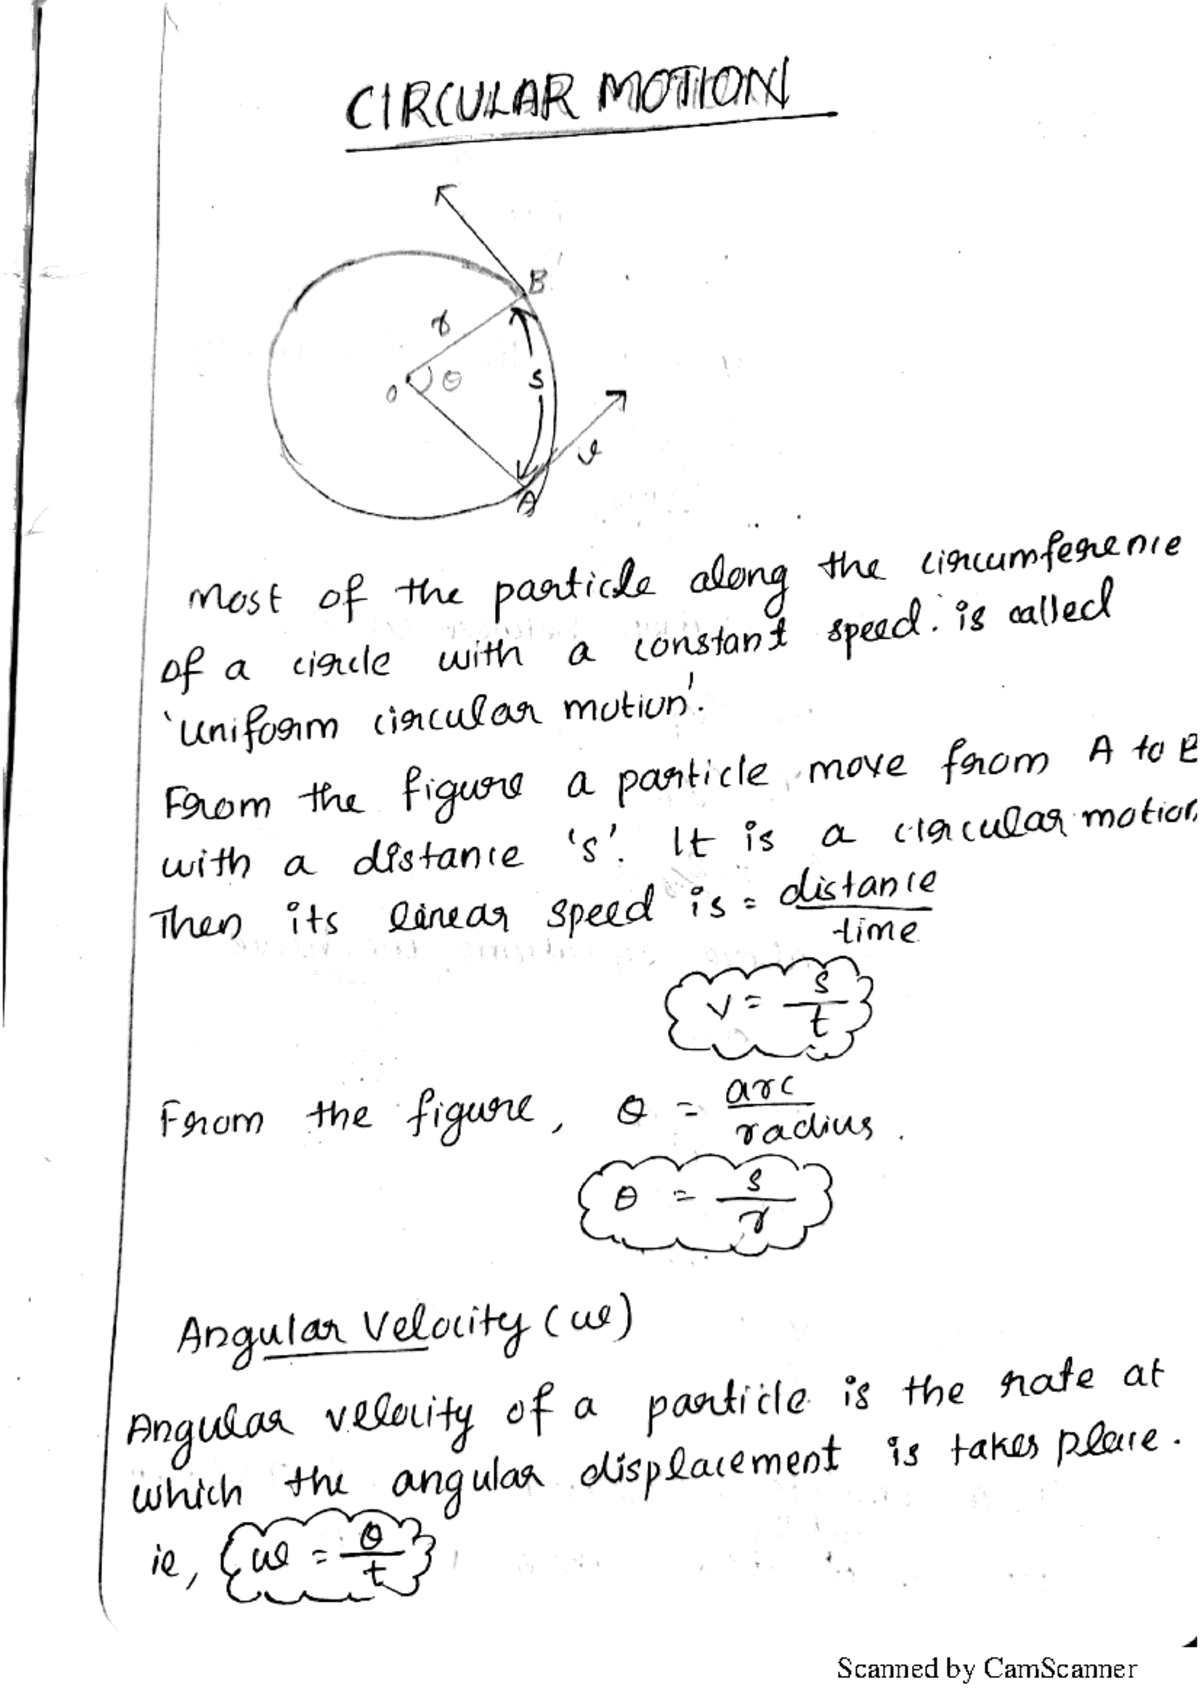 CIRCULAR MOTION
B
r
θ
O
s
v
A
Most of the particle along the circumference
of a circle with a constant speed. is called
'Uniform circular motion'.
From the figure a particle move from A to B
with a distance 's'. It is a circular motion
Then its linear speed is = distance
time
v = s/t
From the figure, θ = arc
radius.
θ = s/r
Angular Velocity (ω)
Angular velocity of a particle is the rate at
which the angular displacement is takes place.
ie, ω = θ/t
Scanned by CamScanner